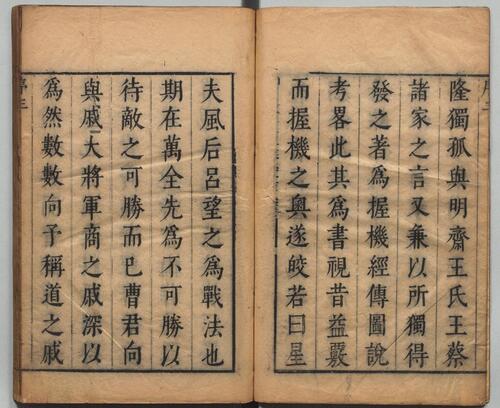 隆獨孤與明齋王氏王蔡
諸家之言又兼以所獨得
發之著為握機經傳圖說
考畧此其為書視昔益覈
而握機之奧遂皎若日星
夫風后呂望之為戰法也
期在萬全先為不可勝以
待敵之可勝而已曹君向
與戚大將軍商之戚深以
為然數數向予稱道之戚
序三